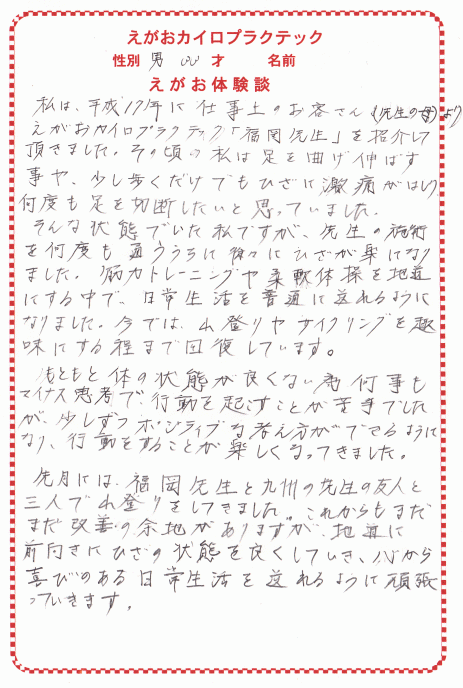 えがおカイロプラクテック
性別 男 才 名前
えがお体験談
私は、平成17年に仕事上のお客さん(先生の母)より
えがおカイロプラクテック「福岡先生」を紹介して
頂きました。その頃の私は足を曲げ伸ばす
事や、少し歩くだけでもひざに激痛がはしり
何度も足を切断したいと思っていました。
そんな状態でいた私ですが、先生の施術
を何度も通ううちに徐々にひざが楽になり
ました。筋力トレーニングや柔軟体操を地道
にする中で、日常生活を普通に送れるように
なりました。今では、山登りやサイクリングを趣
味にする程まで回復しています。
もともと体の状態が良くない為何事も
マイナス思考で、行動を起こすことが苦手でした
が、少しずつポジティブな考え方ができるように
なり、行動をすることが楽しくなってきました。
先月には、福岡先生と九州の先生の友人と
三人で山登りをしてきました。これからもまだ
まだ改善の余地がありますが、地道に
前向きにひざの状態を良くしていき、心から
喜びのある日常生活を送れるように頑張
っていきます。